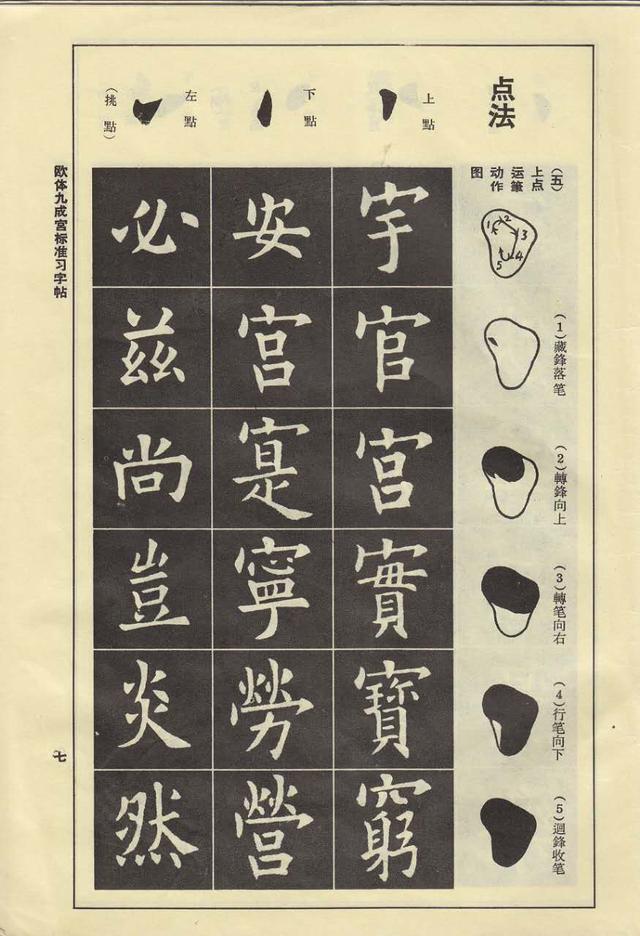 点法
（五）
上点
运筆
动作
图
1 2 3 4 5
（1）藏鋒落笔
（2）轉鋒向上
（3）轉笔向右
（4）行笔向下
（5）迴鋒收笔
上點
宇官宫實寶窮
下點
安宫寔寧勞營
左點
（挑點）
必兹尚豈炎然
欧体九成宫标准习字帖
七